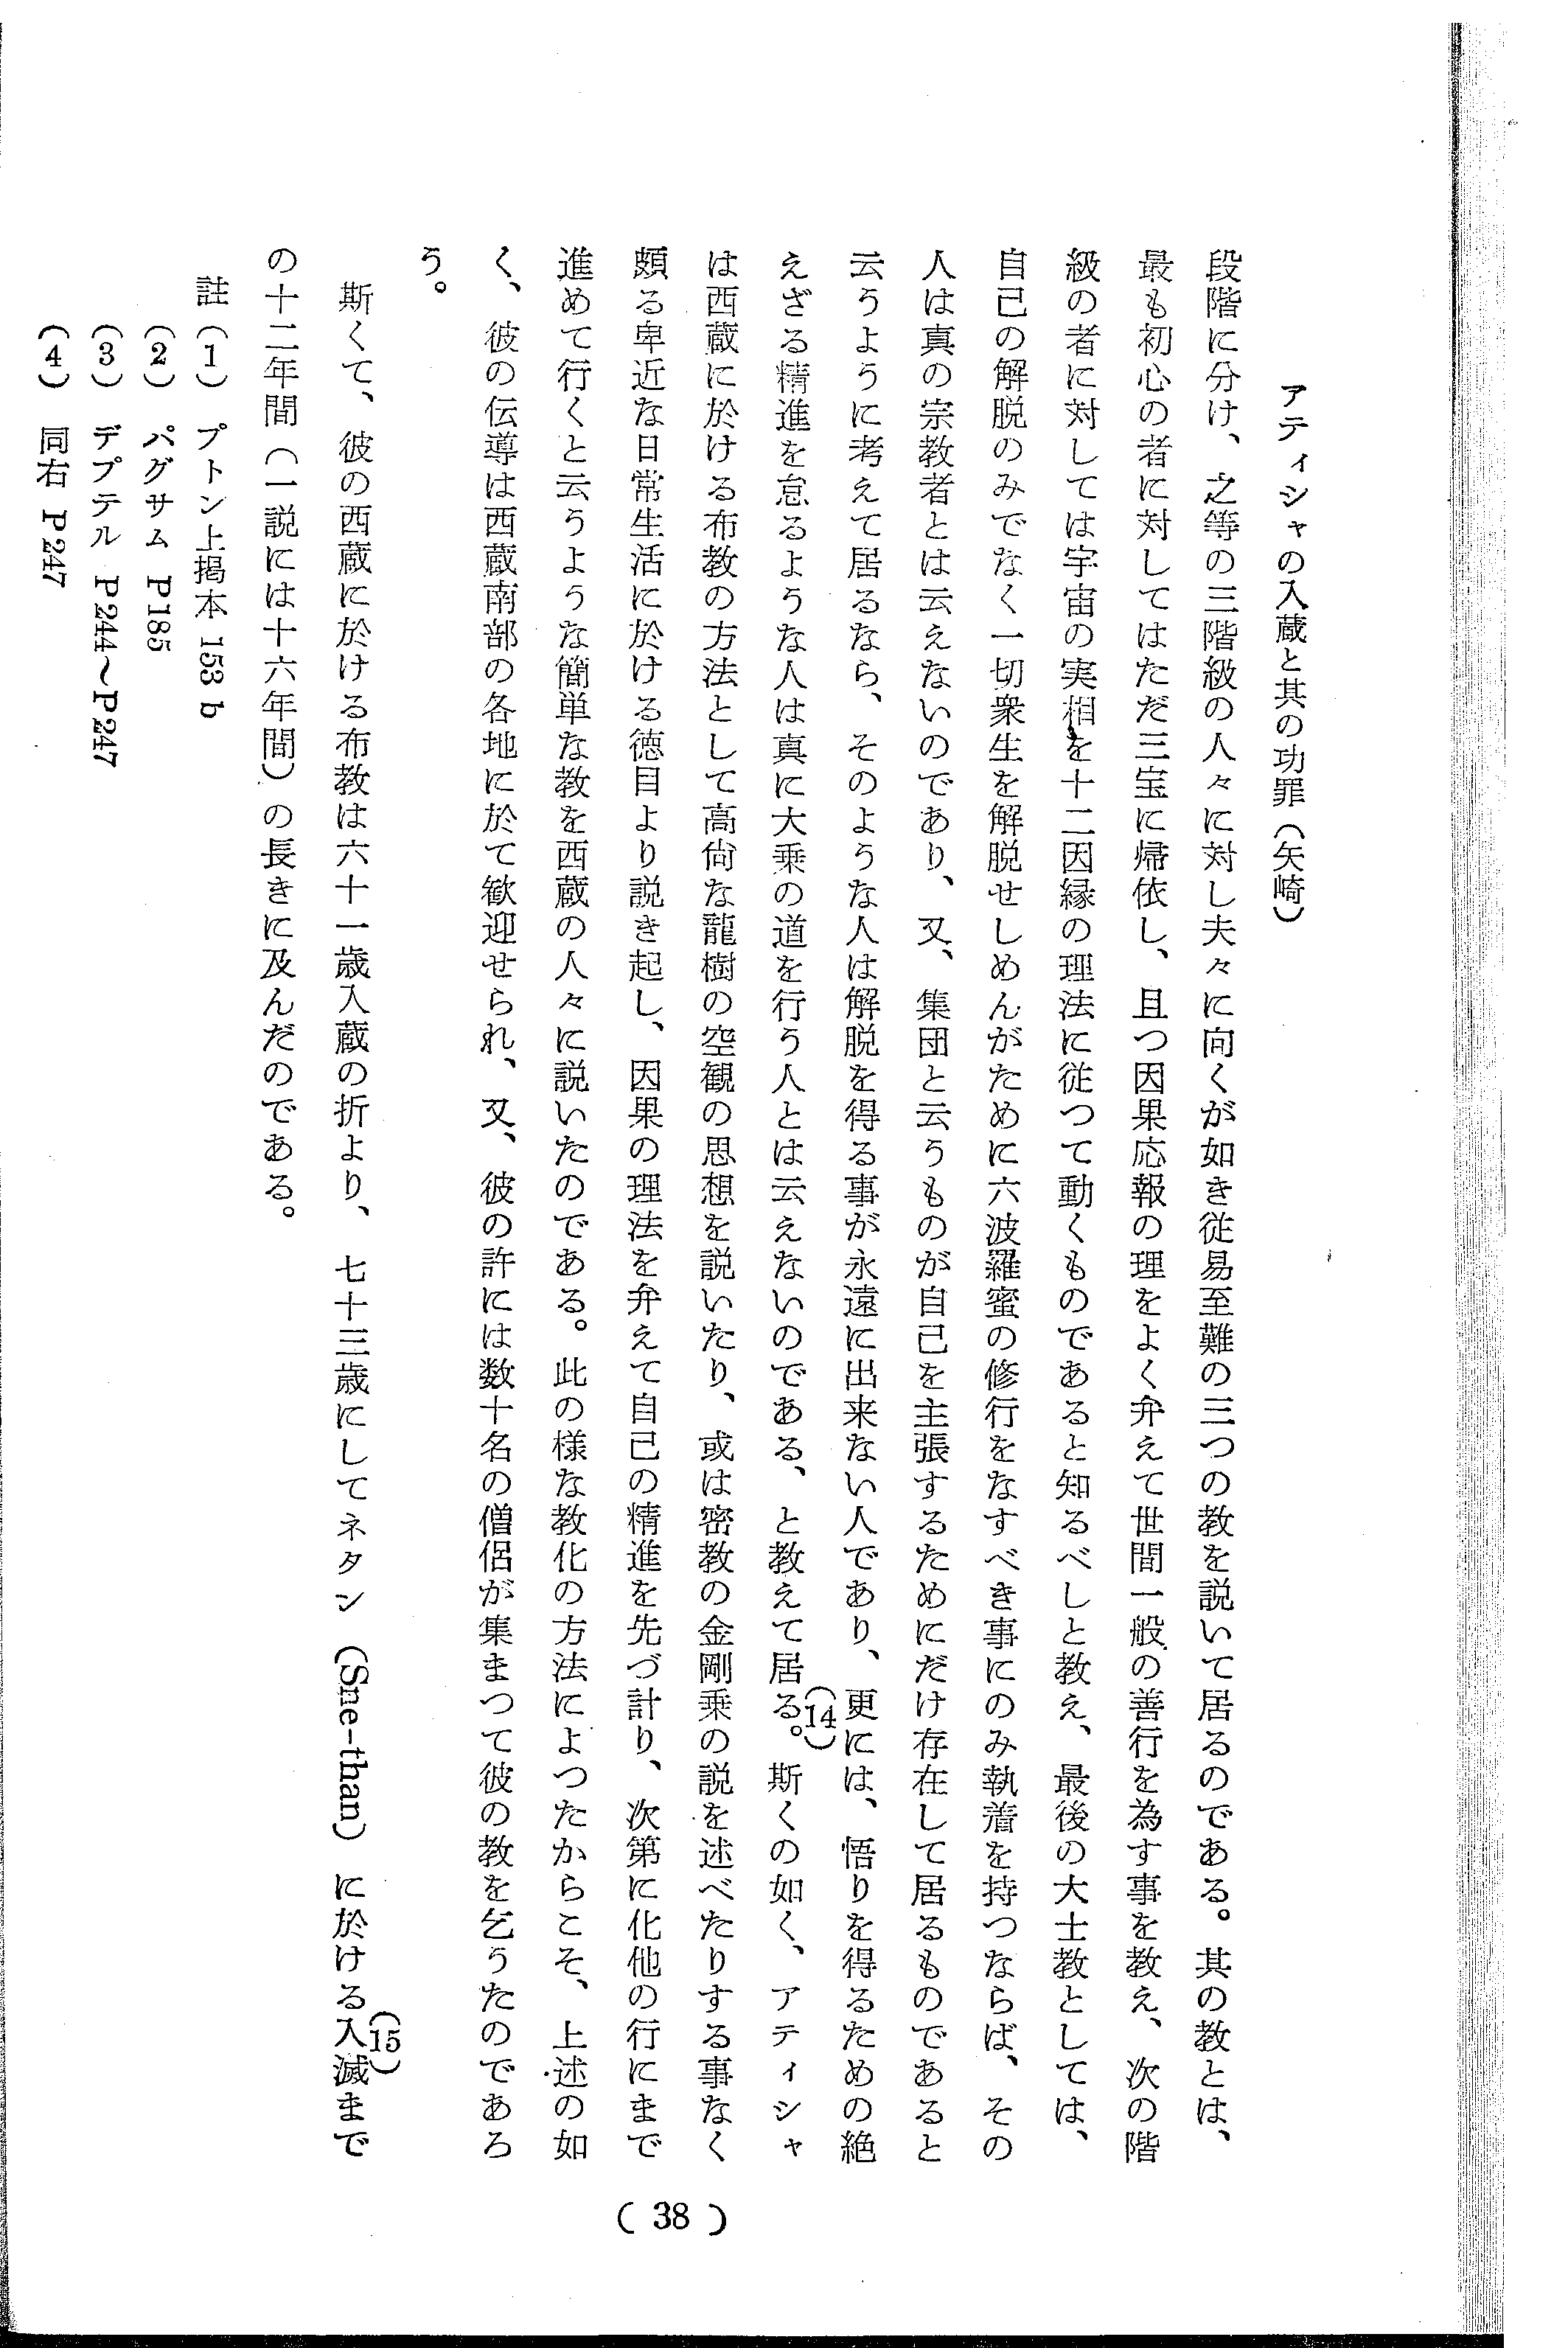 アティシャの入蔵と其の功罪（矢崎）
段階に分け、之等の三階級の人々に対し夫々に向くが如き従易至難の三つの教を説いて居るのである。其の教とは、
最も初心の者に対してはただ三宝に帰依し、且つ因果応報の理をよく弁えて世間一般の善行を為す事を教え、次の階
級の者に対しては宇宙の実相を十二因縁の理法に従つて動くものであると知るべしと教え、最後の大士教としては、
自己の解脱のみでなく一切衆生を解脱せしめんがために六波羅蜜の修行をなすべき事にのみ執着を持つならば、その
人は真の宗教者とは云えないのであり、又、集団と云うものが自己を主張するためにだけ存在して居るものであると
云うように考えて居るなら、そのような人は解脱を得る事が永遠に出来ない人であり、更には、悟りを得るための絶
えざる精進を怠るような人は真に大乗の道を行う人とは云えないのである、と教えて居る。(14)斯くの如く、アティシャ
は西蔵に於ける布教の方法として高尚な龍樹の空観の思想を説いたり、或は密教の金剛乗の説を述べたりする事なく
頗る卑近な日常生活に於ける徳目より説き起し、因果の理法を弁えて自己の精進を先づ計り、次第に化他の行にまで
進めて行くと云うような簡単な教を西蔵の人々に説いたのである。此の様な教化の方法によつたからこそ、上述の如
く、彼の伝導は西蔵南部の各地に於て歓迎せられ、又、彼の許には数十名の僧侶が集まつて彼の教を乞うたのであろ
う。
斯くて、彼の西蔵に於ける布教は六十一歳入蔵の折より、七十三歳にしてネタン（Sne-than）に於ける入滅(15)まで
の十二年間（一説には十六年間）の長きに及んだのである。
註(1) プトン上掲本 153 b
(2) パグサム P 185
(3) デプテル P 244～P 247
(4) 同右 P 247
( 38 )